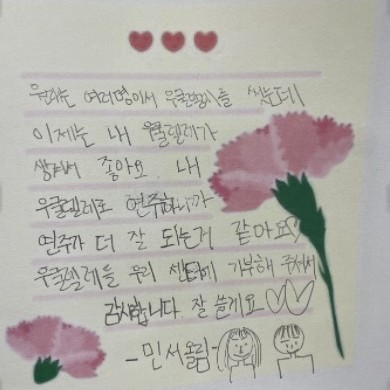 원래는 여러명이서 우쿨렐레를 썼는데
이제는 내 우쿨렐레가
생겨서 좋아요. 내
우쿨렐레로 연주하니까
연주가 더 잘 되는거 같아요♡
우쿨렐레를 우리 센터에 기부해 주셔서
감사합니다. 잘 쓸게요♡♡
-민서올림-